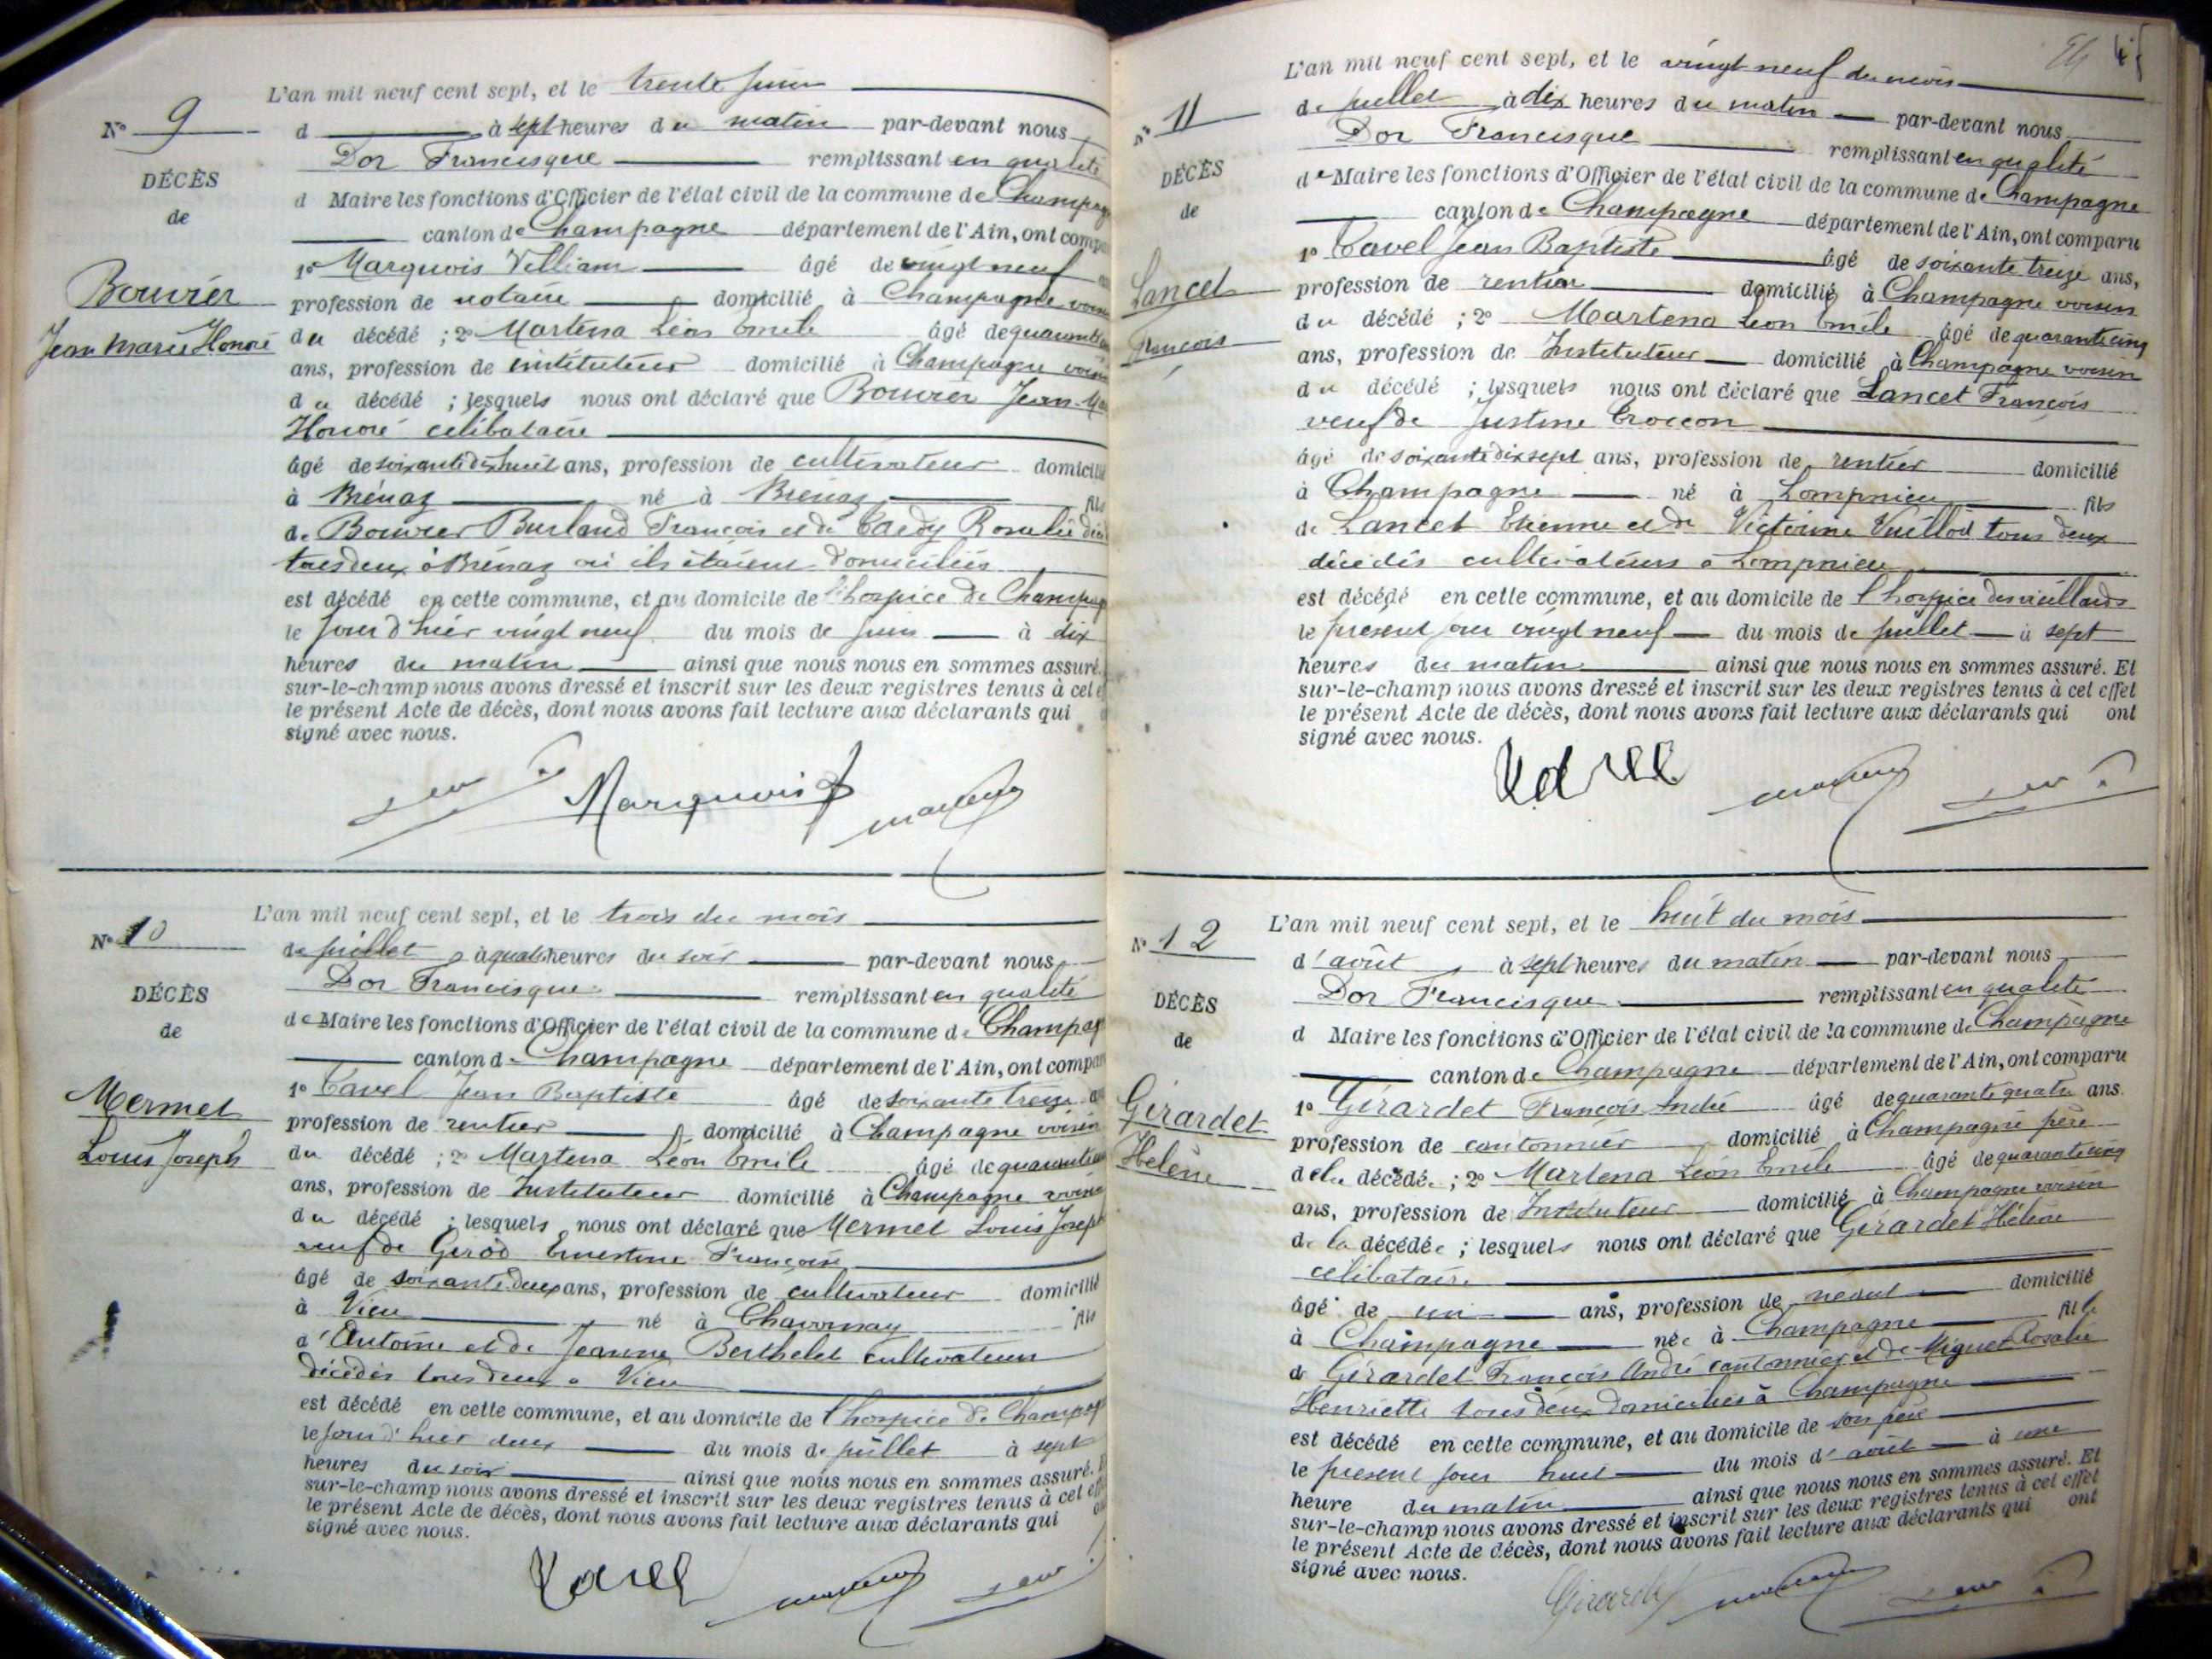 L'an mil neuf cent sept, et le trente juin
N° 9
d à sept heures du matin par-devant nous
Dor Francisque remplissant en qualité
DÉCÈS
d Maire les fonctions d'Officier de l'état civil de la commune de Champag
de
canton de Champagne département de l'Ain, ont compa
1° Marquois William âgé de vingt neuf
Bouvier
profession de notaire domicilié à Champagne voisin
Jean Marie Honoré
du décédé ; 2° Martena Léon Emile âgé de quarante
ans, profession de instituteur domicilié à Champagne voisin
du décédé ; lesquels nous ont déclaré que Bouvier Jean-Ma
Honoré célibataire
âgé de soixante dix huit ans, profession de cultivateur domicilié
à Brénaz né à Brénaz fils
de Bouvier Burland François et de Tardy Rosalie
tous deux à Brénaz où ils étaient domiciliés
est décédé en cette commune, et au domicile de l'hospice de Champag
le jour d'hier vingt neuf du mois de juin à dix
heures du matin ainsi que nous nous en sommes assuré.
sur-le-champ nous avons dressé et inscrit sur les deux registres tenus à cet e
le présent Acte de décès, dont nous avons fait lecture aux déclarants qui
signé avec nous.
Marquois
L'an mil neuf cent sept, et le trois du mois
N° 10
de juillet à quatre heures du soir par-devant nous
Dor Francisque remplissant en qualité
DÉCÈS
de Maire les fonctions d'Officier de l'état civil de la commune de Champag
de
canton de Champagne département de l'Ain, ont compar
1° Tavel Jean Baptiste âgé de soixante treize
Mermet
profession de rentier domicilié à Champagne voisin
Louis Joseph
du décédé ; 2° Martena Léon Emile âgé de quarante
ans, profession de Instituteur domicilié à Champagne voisin
du décédé ; lesquels nous ont déclaré que Mermet Louis Joseph
veuf de Gerod Ernestine Françoise
âgé de soixante deux ans, profession de cultivateur domicilié
à Vieu né à Chavornay fils
d'Antoine et de Jeanne Berthelet cultivateurs
décédés tous deux à Vieu
est décédé en cette commune, et au domicile de l'hospice de Champag
le jour d'hier deux du mois de juillet à sept
heures du soir ainsi que nous nous en sommes assuré.
sur-le-champ nous avons dressé et inscrit sur les deux registres tenus à cet eff
le présent Acte de décès, dont nous avons fait lecture aux déclarants qui
signé avec nous.
Tavel
L'an mil neuf cent sept, et le vingt neuf du mois
N° 11
de juillet à dix heures du matin par-devant nous
Dor Francisque remplissant en qualité
DÉCÈS
de Maire les fonctions d'Officier de l'état civil de la commune de Champagne
de
canton de Champagne département de l'Ain, ont comparu
1° Tavel Jean Baptiste âgé de soixante treize ans,
Lancet
profession de rentier domicilié à Champagne voisin
François
du décédé ; 2° Martena Leon Emile âgé de quarante cinq
ans, profession de Instituteur domicilié à Champagne voisin
du décédé ; lesquels nous ont déclaré que Lancet François
veuf de Justine Croccon
âgé de soixante dix sept ans, profession de rentier domicilié
à Champagne né à Lompnieu fils
de Lancet Etienne et de Victorine Vuillod tous deux
décédés cultivateurs à Lompnieu
est décédé en cette commune, et au domicile de l'hospice des vieillards
le présent jour vingt neuf du mois de juillet à sept
heures du matin ainsi que nous nous en sommes assuré. Et
sur-le-champ nous avons dressé et inscrit sur les deux registres tenus à cet effet
le présent Acte de décès, dont nous avons fait lecture aux déclarants qui ont
signé avec nous.
Tavel
L'an mil neuf cent sept, et le huit du mois
N° 12
d'août à sept heures du matin par-devant nous
Dor Francisque remplissant en qualité
DÉCÈS
d Maire les fonctions d'Officier de l'état civil de la commune de Champagne
de
canton de Champagne département de l'Ain, ont comparu
1° Girardet François André âgé de quarante quatre ans.
Girardet
profession de cantonnier domicilié à Champagne père
Helène
de la décédée ; 2° Martena Léon Emile âgé de quarante cinq
ans, profession de Instituteur domicilié à Champagne voisin
de la décédée ; lesquels nous ont déclaré que Girardet Hélène
célibataire
âgé de un ans, profession de néant domicilié
à Champagne née à Champagne fille
de Girardet François André cantonnier et de Miguet Rosalie
Henriette tous deux domiciliés à Champagne
est décédé en cette commune, et au domicile de son père
le présent jour huit du mois d'août à une
heure du matin ainsi que nous nous en sommes assuré. Et
sur-le-champ nous avons dressé et inscrit sur les deux registres tenus à cet effet
le présent Acte de décès, dont nous avons fait lecture aux déclarants qui ont
signé avec nous.
Girardet